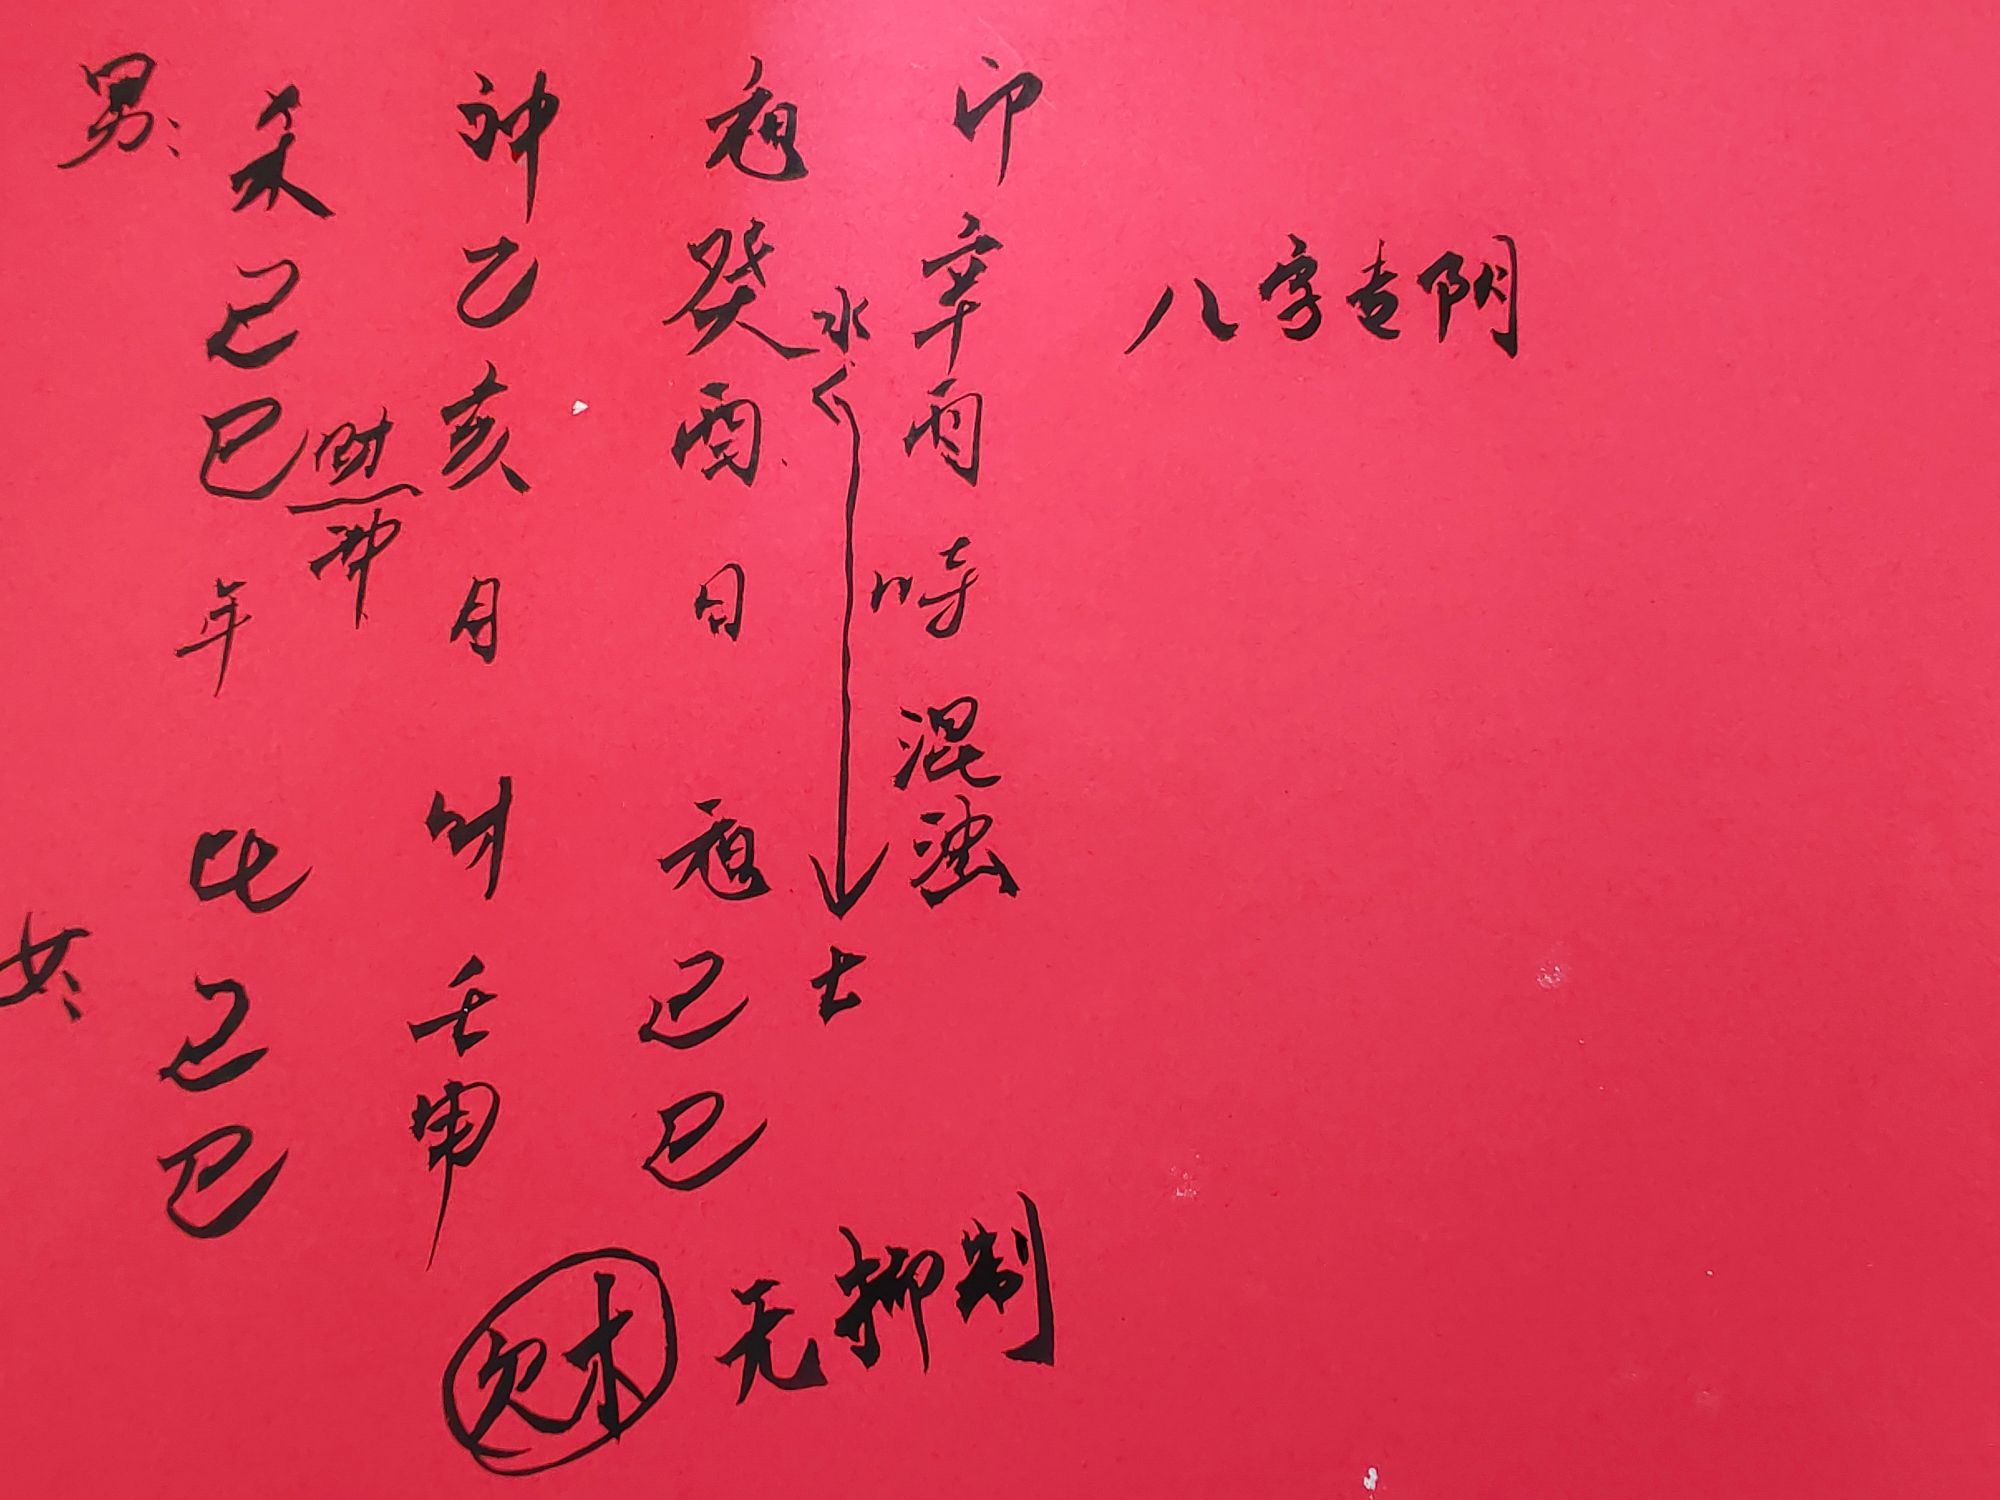 男: 杀 神 祖 印
己 乙 癸 辛
水
巳 亥 酉 酉
财
冲
年 月 日 时
八字 阴
混浊
女: 比 财 祖
己 壬 己 土
巳 申 巳
欠木 无抑制